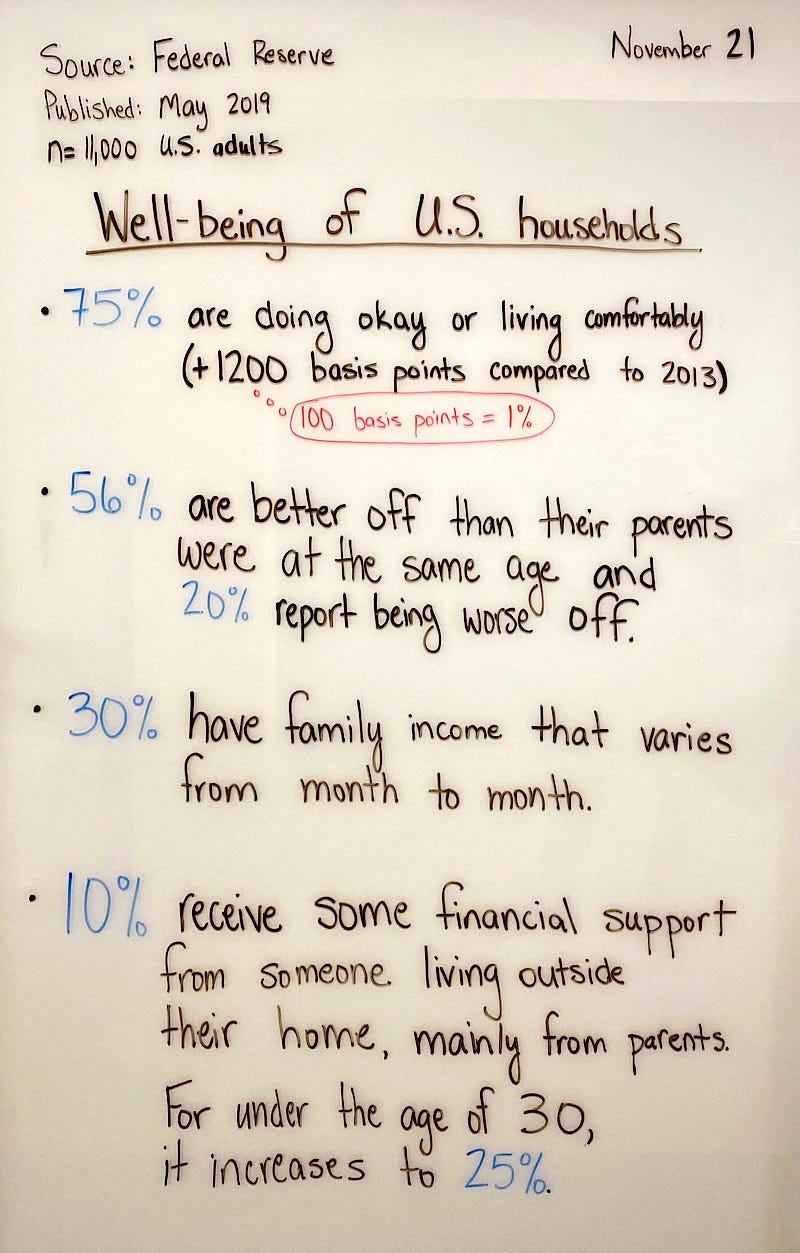 Source: Federal Reserve
November 21
Published: May 2019
n= 11,000 U.S. adults
Well-being of U.S. households
• 75% are doing okay or living comfortably
(+1200 basis points compared to 2013)
100 basis points = 1%
• 56% are better off than their parents
were at the same age and
20% report being worse off.
• 30% have family income that varies
from month to month.
• 10% receive some financial support
from someone living outside
their home, mainly from parents.
For under the age of 30,
it increases to 25%.